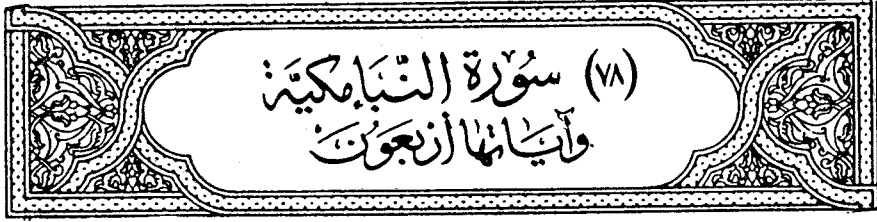 (٧٨) سُوْرَةِ النَّبَإِ مَكيَّة
وَآيَاتهَا أَرْبَعَوُنَ